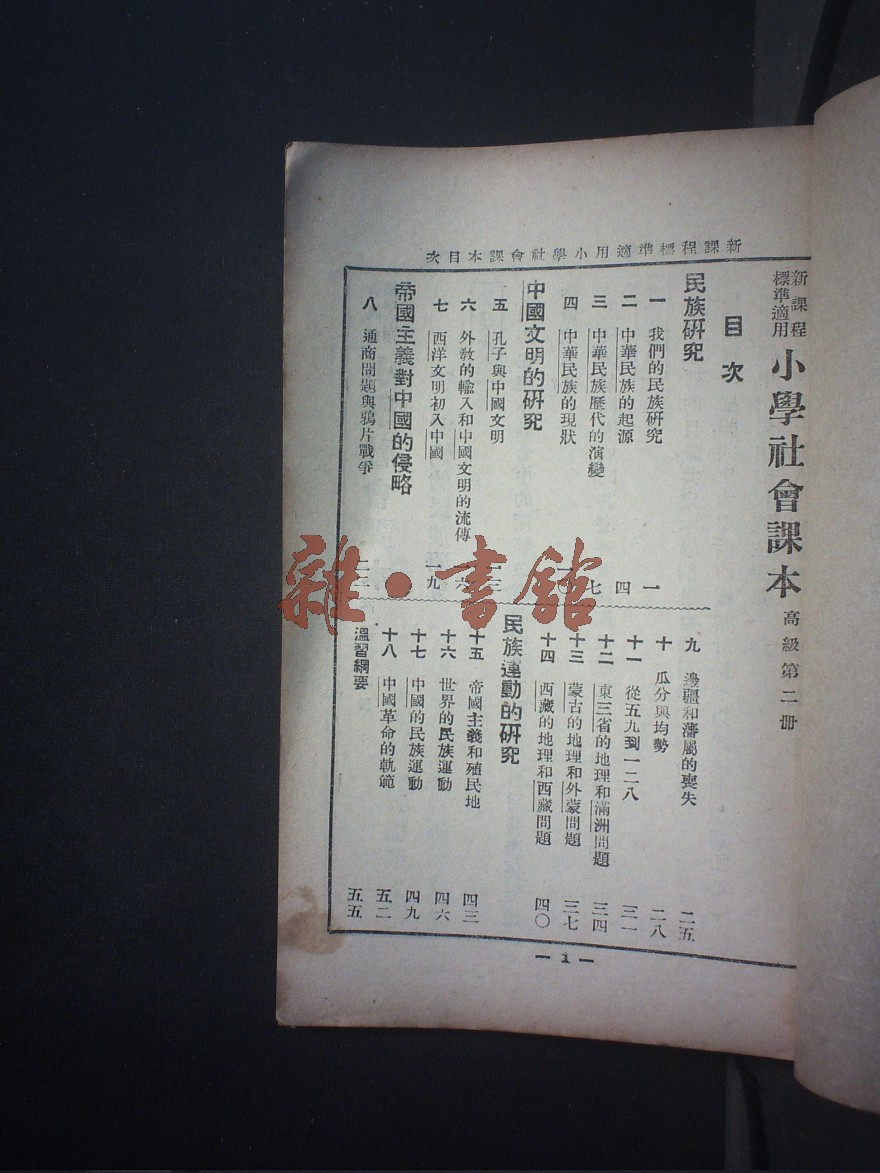 新課程標準適用小學社會課本目次
新課程
標準適用
小學社會課本 高級第二册
目次
民族硏究
一 我們的民族硏究 一
二 中華民族的起源 四
三 中華民族歷代的演變 七
四 中華民族的現狀
中國文明的硏究
五 孔子與中國文明
六 外教的輸入和中國文明的流傳 一六
七 西洋文明初入中國 一九
帝國主義對中國的侵略
八 通商問題與鴉片戰爭 二二
九 邊疆和藩屬的喪失 二五
十 瓜分與均勢 二八
十一 從五九到一二八 三一
十二 東三省的地理和滿洲問題 三四
十三 蒙古的地理和外蒙問題 三七
十四 西藏的地理和西藏問題 四〇
民族運動的硏究
十五 帝國主義和殖民地 四三
十六 世界的民族運動 四六
十七 中國的民族運動 四九
十八 中國革命的軌範 五二
溫習綱要 五五
— 1 —
雜·書館